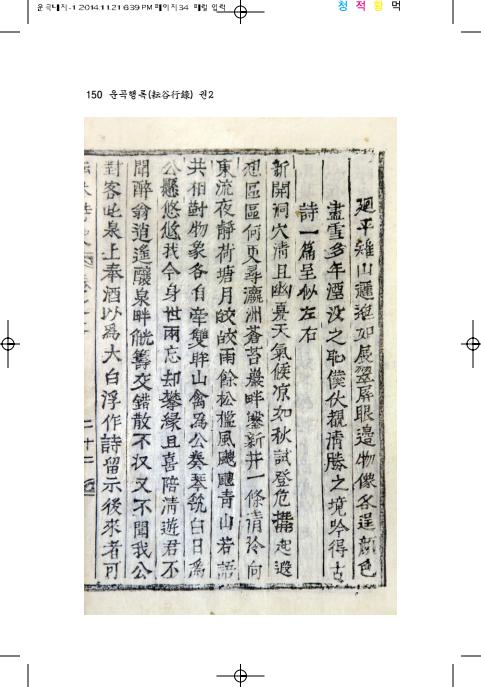 운곡내지-1 2014.11.21 6:39 PM 페이지34 매킬 입력
청 적 황 먹
150 운곡행록(耘谷行錄) 권2
廻平雉山邐迤如展翠屛眼邊物像各逞顔色
盡雪多年湮沒之恥僕伏覩淸勝之境吟得古
詩一篇呈似左右
新開洞穴淸且幽夏天氣候凉如秋試登危構起遐
想區區何更尋瀛洲蒼苔巖畔鑿新井一條淸泠向
東流夜靜荷塘月皎皎雨餘松檻風颼飀靑山若語
共相對物象各自牽雙眸山禽爲公奏琴筑白日爲
公懸悠悠我今身世兩忘却攀緣且喜陪淸遊君不
聞醉翁逍遙釀泉畔觥籌交錯散不收又不聞我公
對客此泉上奉酒以爲大白浮作詩留示後來者可
二十二